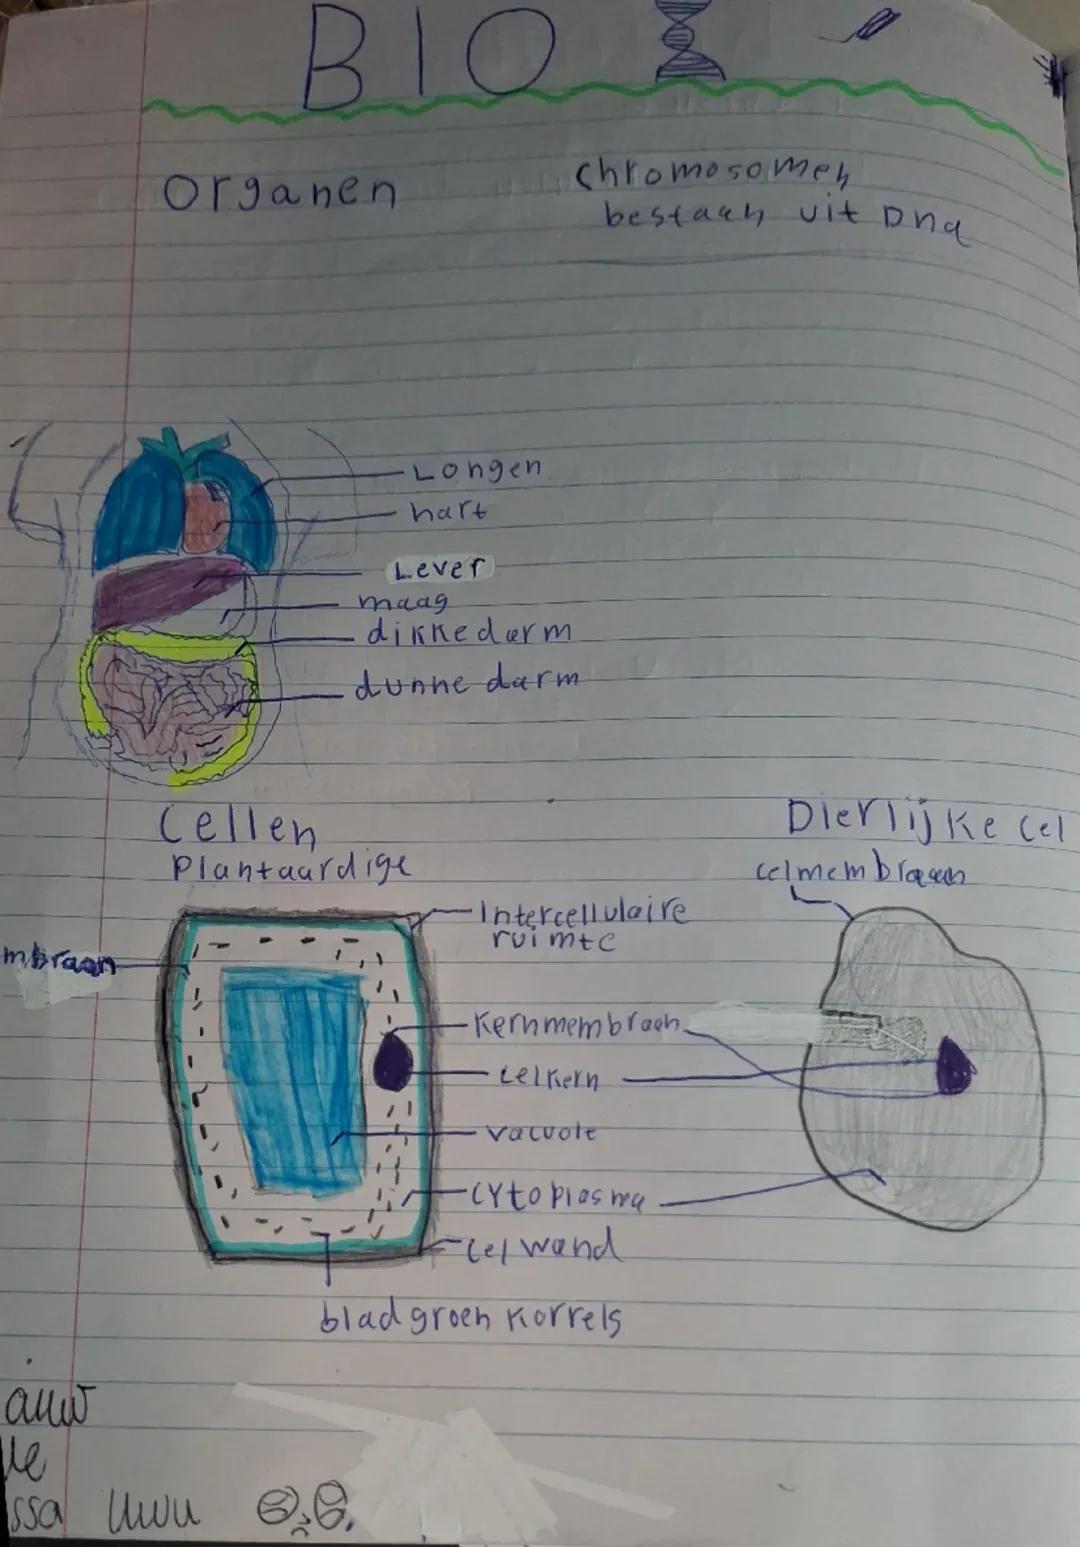 BIO
Organen
Chromosomen
bestaan uit Dna
Longen
hart
Lever
maag
dikke darm
dunne darm
Cellen
Plantaardige
Dierlijke cel
celmembraan
Intercellulaire
ruimte
mbraan
Kernmembraan
celkern
vacuole
cytoplasma
celwand
bladgroen korrels
ssa uwu